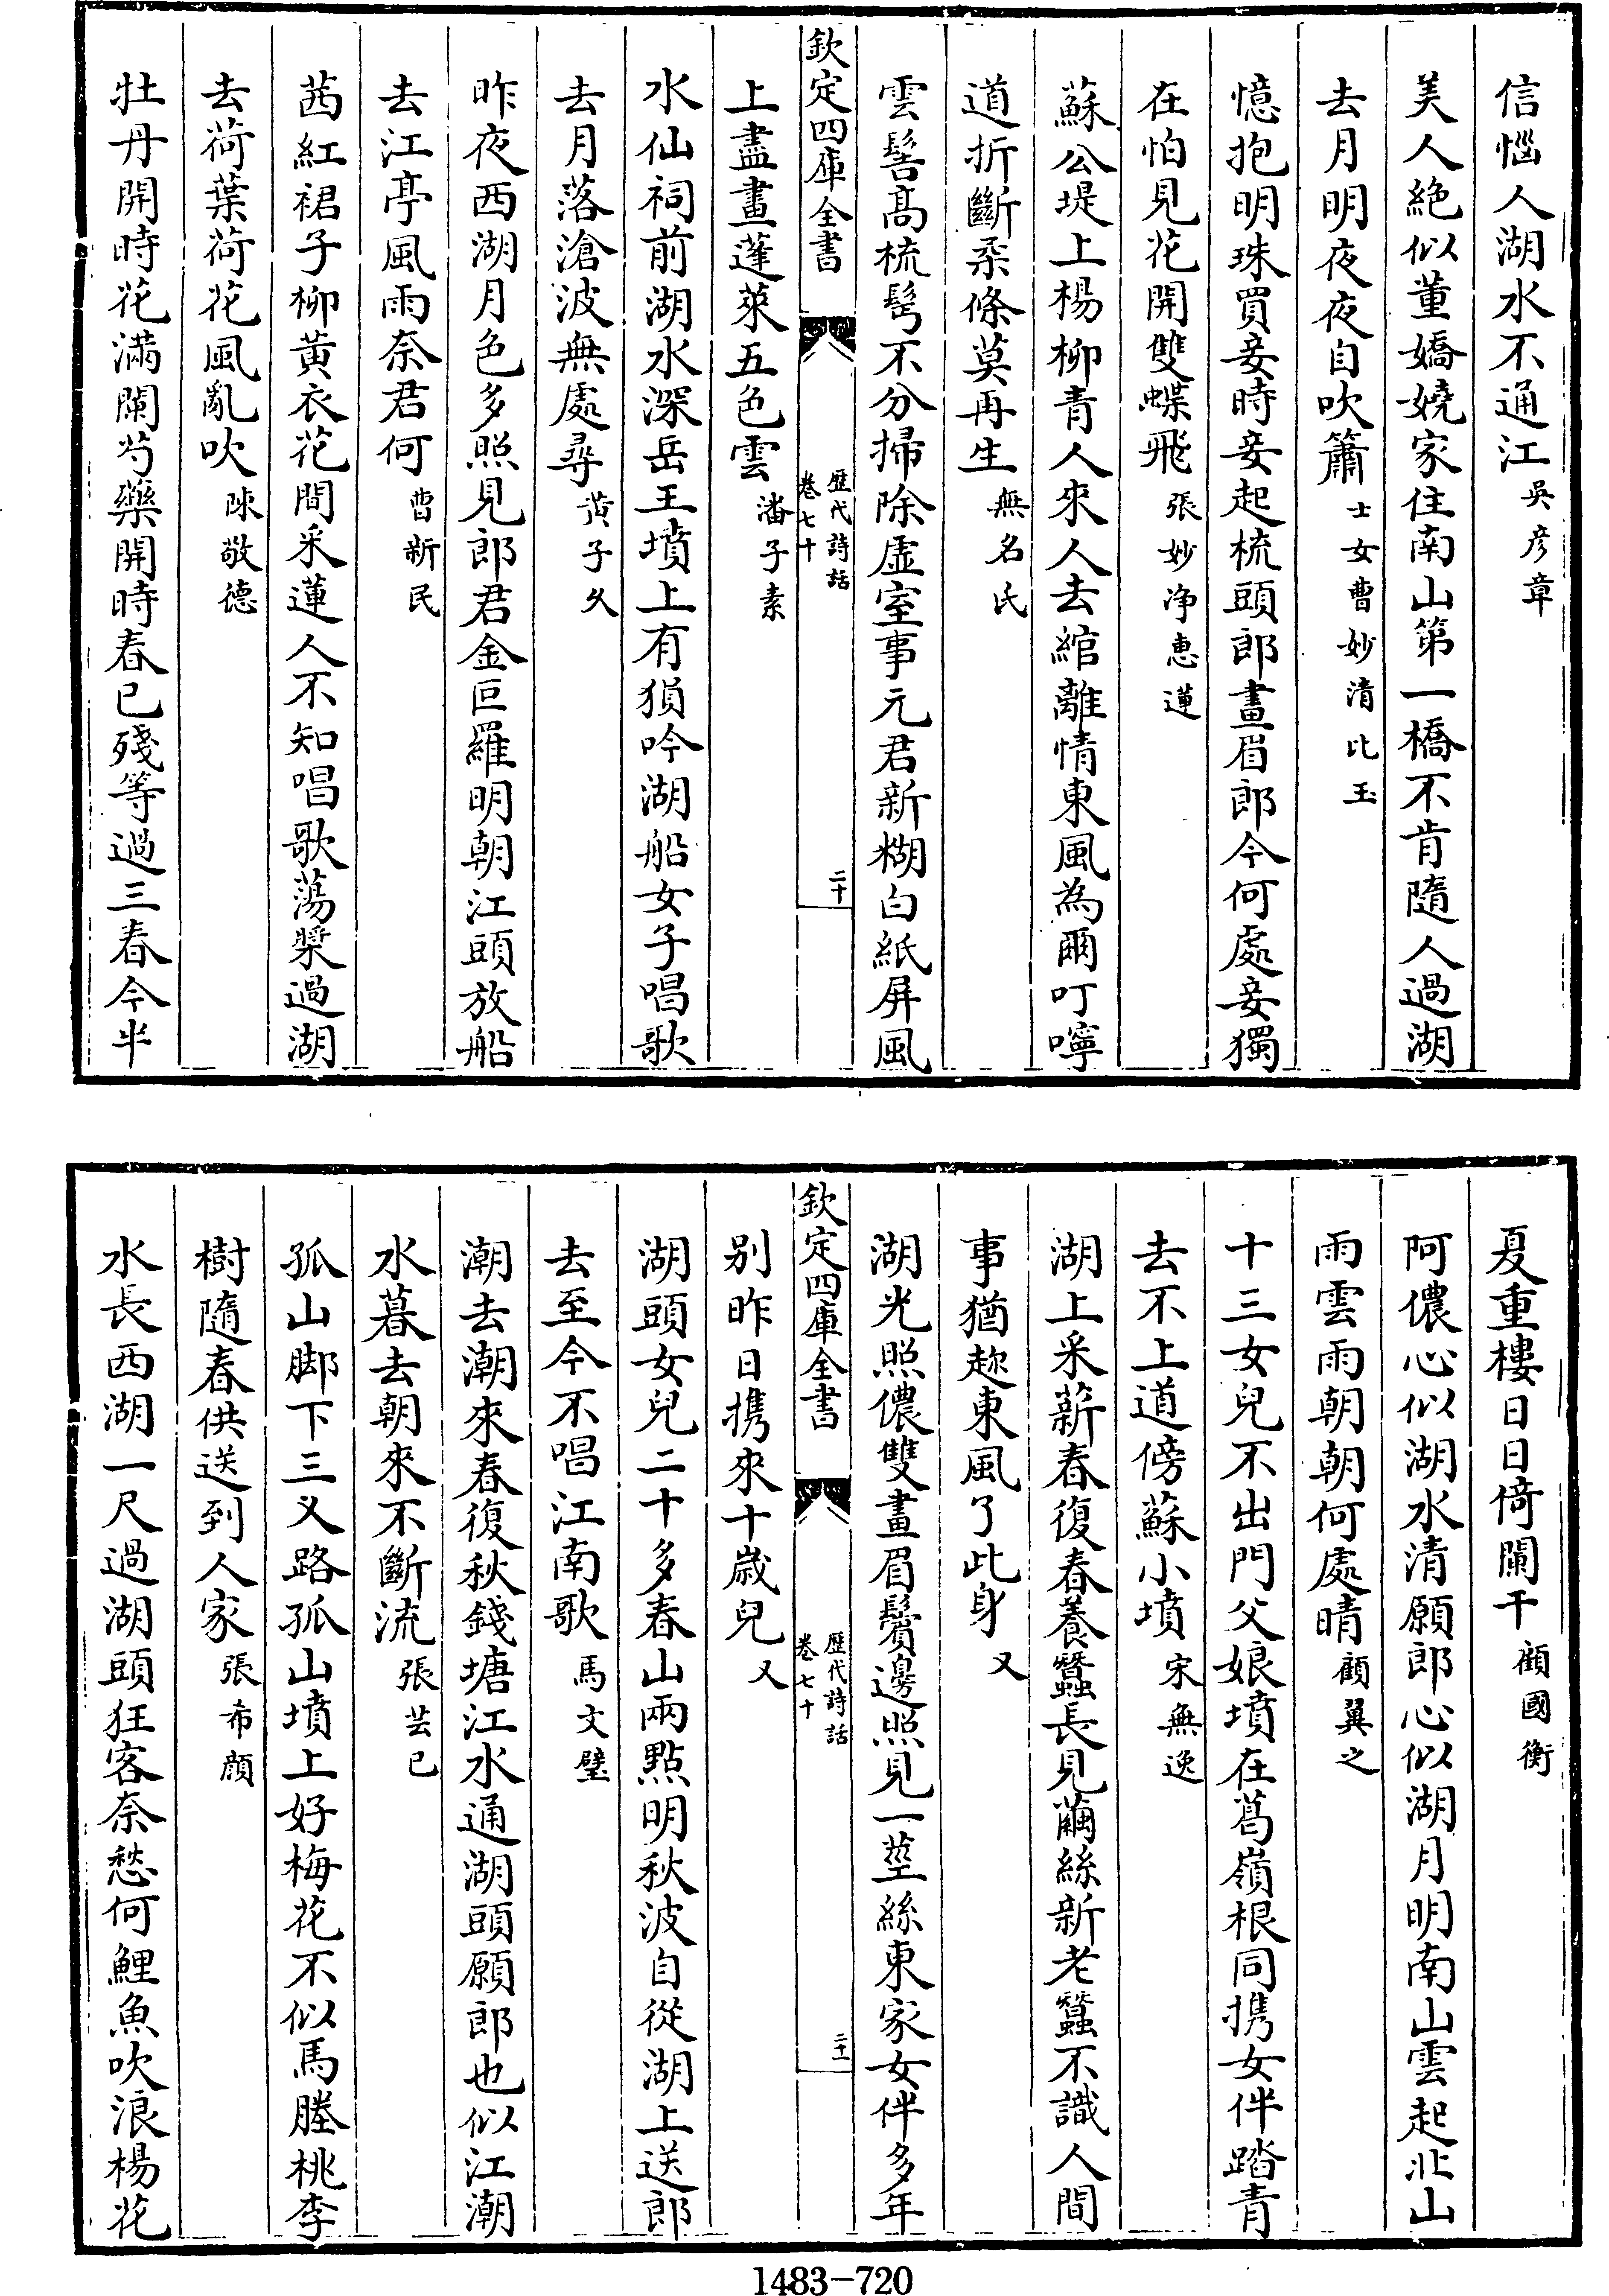 信惱人湖水不通江吳彥章
美人絶似董嬌嬈家住南山第一橋不肯隨人過湖
去月明夜夜自吹簫士女曹妙清比玉
憶抱明珠買妾時妾起梳頭郎畫眉郎今何處妾獨
在怕見花開雙蝶飛張妙净惠蓮
蘇公堤上楊柳青人來人去綰離情東風為爾叮嚀
道折斷柔條莫再生無名氏
雲髻髙梳髩不分掃除虚室事元君新糊白紙屏風
欽定四庫全書
歴代詩話
卷七十
二十
上盡畫蓬萊五色雲潘子素
水仙祠前湖水深岳王墳上有猿吟湖船女子唱歌
去月落滄波無處尋黄子久
昨夜西湖月色多照見郎君金叵羅明朝江頭放船
去江亭風雨奈君何曹新民
茜紅裙子柳黄衣花間采蓮人不知唱歌蕩槳過湖
去荷葉荷花風亂吹陳敬德
牡丹開時花滿闌芍藥開時春已殘等過三春今半
夏重樓日日倚闌干顧國衡
阿儂心似湖水清願郎心似湖月明南山雲起北山
雨雲雨朝朝何處晴顧翼之
十三女兒不出門父娘墳在葛嶺根同携女伴踏青
去不上道傍蘇小墳宋無逸
湖上采薪春復春養蠶長見繭絲新老蠶不識人間
事猶趂東風了此身又
湖光照儂雙畫眉鬢邊照見一莖絲東家女伴多年
欽定四庫全書
歴代詩話
卷七十
二十一
别昨日携來十歳兒又
湖頭女兒二十多春山兩點明秋波自從湖上送郎
去至今不唱江南歌馬文璧
潮去潮來春復秋錢塘江水通湖頭願郎也似江潮
水暮去朝來不斷流張芸已
孤山脚下三义路孤山墳上好梅花不似馬塍桃李
樹隨春供送到人家張希顔
水長西湖一尺過湖頭狂客奈愁何鯉魚吹浪楊花
1483-720